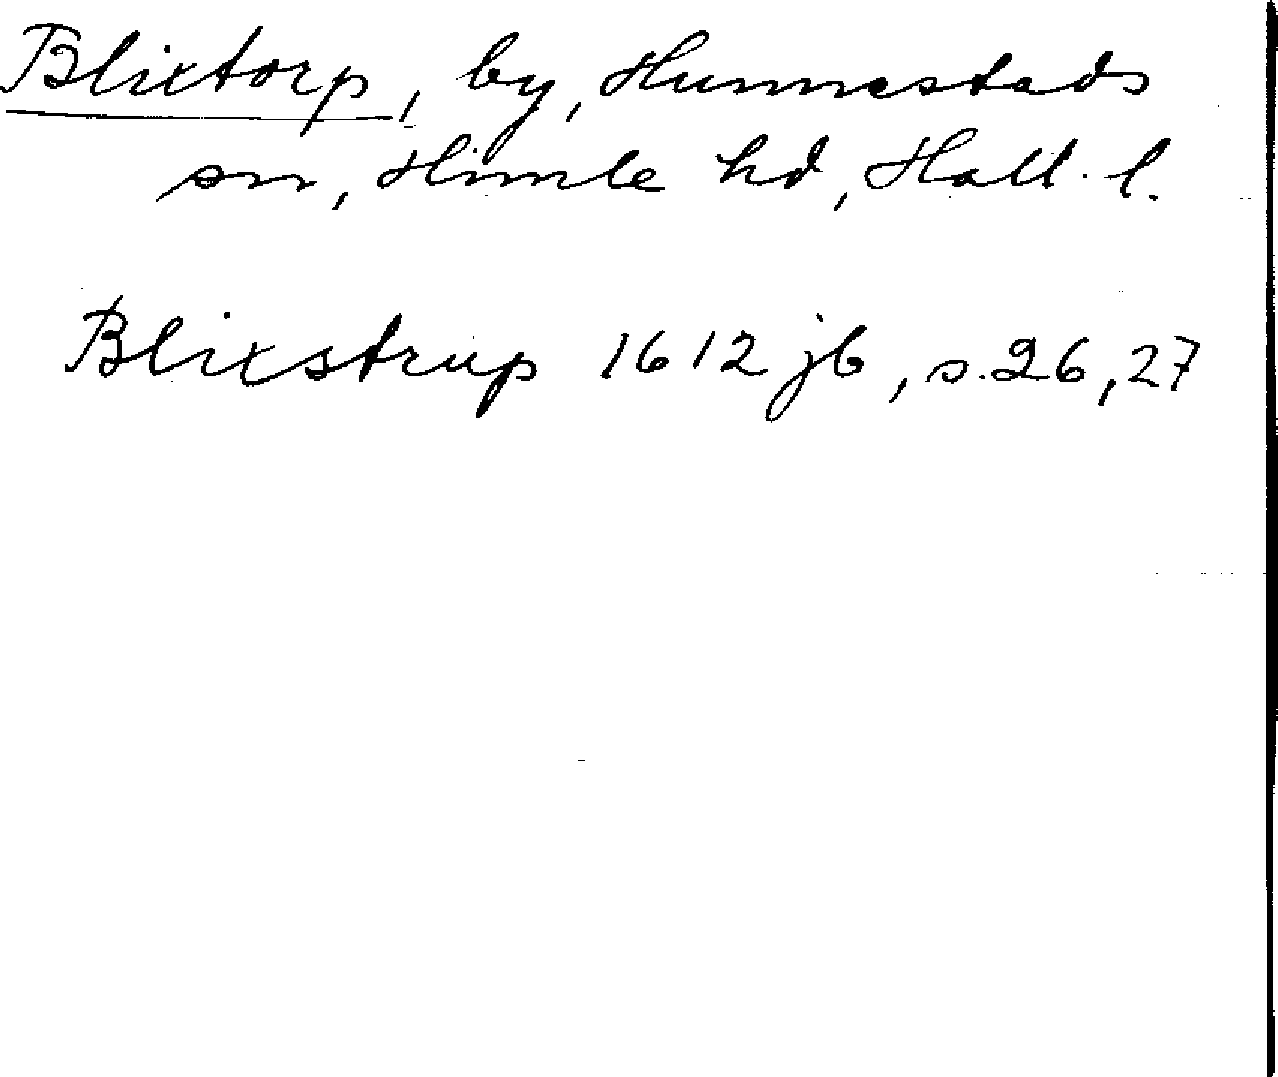 Blixtorp, by, Hunnestads
sn, Himle hd, Hall. l.
Blixstrup 1612 jb, s. 26, 27